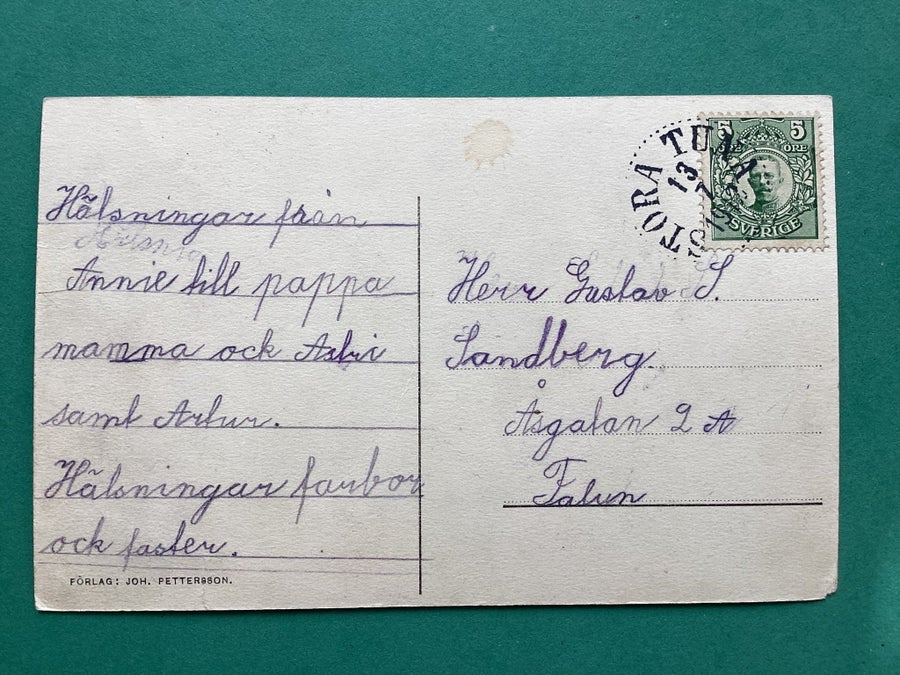 Hälsningar från
Annie till pappa
mamma ock Astri
samt Artur.
Hälsningar farbor
ock faster.
FÖRLAG: JOH. PETTERSSON.
STORA TUNA
13
7
5 5
ÖRE
SVERIGE
Herr Gustav S.
Sandberg.
Åsgatan 2 A
Falun